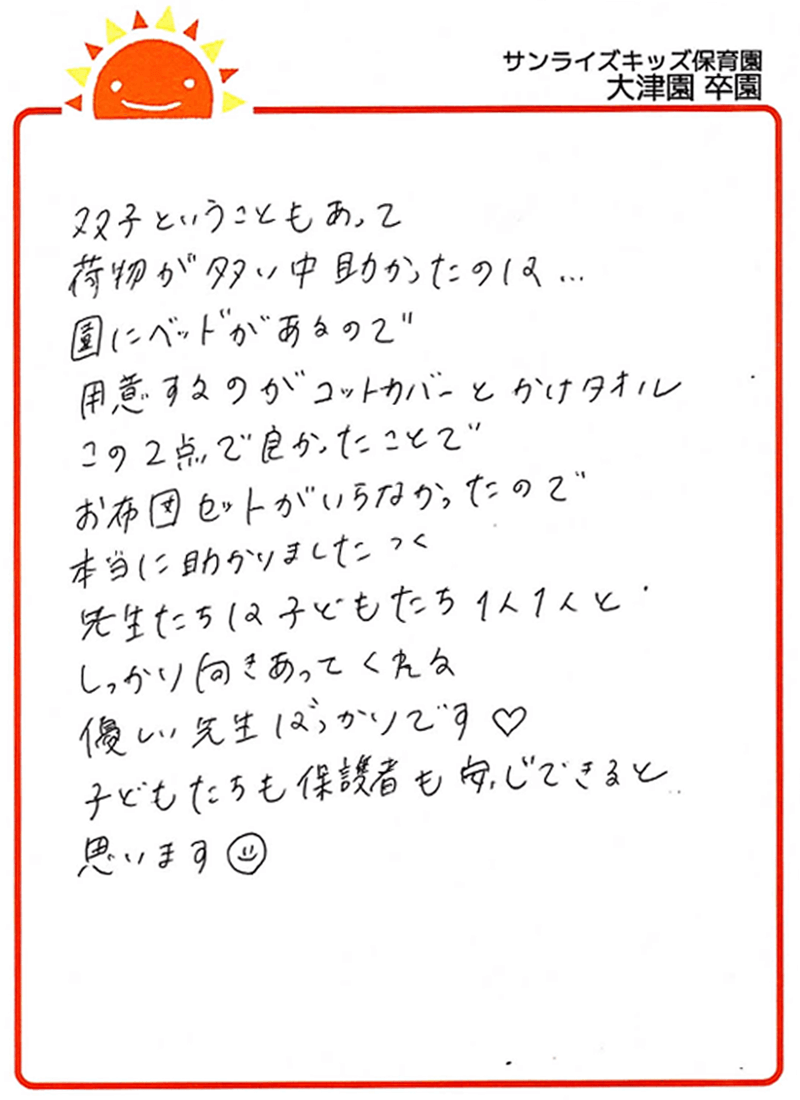 サンライズキッズ保育園
大津園 卒園
双子ということもあって
荷物が多い中助かったのは…
園にベッドがあるので
用意するのがコットカバーとかけタオル
この2点で良かったことで
お布団セットがいらなかったので
本当に助かりました
先生たちは子どもたち1人1人と
しっかり向きあってくれる
優しい先生ばっかりです♡
子どもたちも保護者も安心できると
思います☺